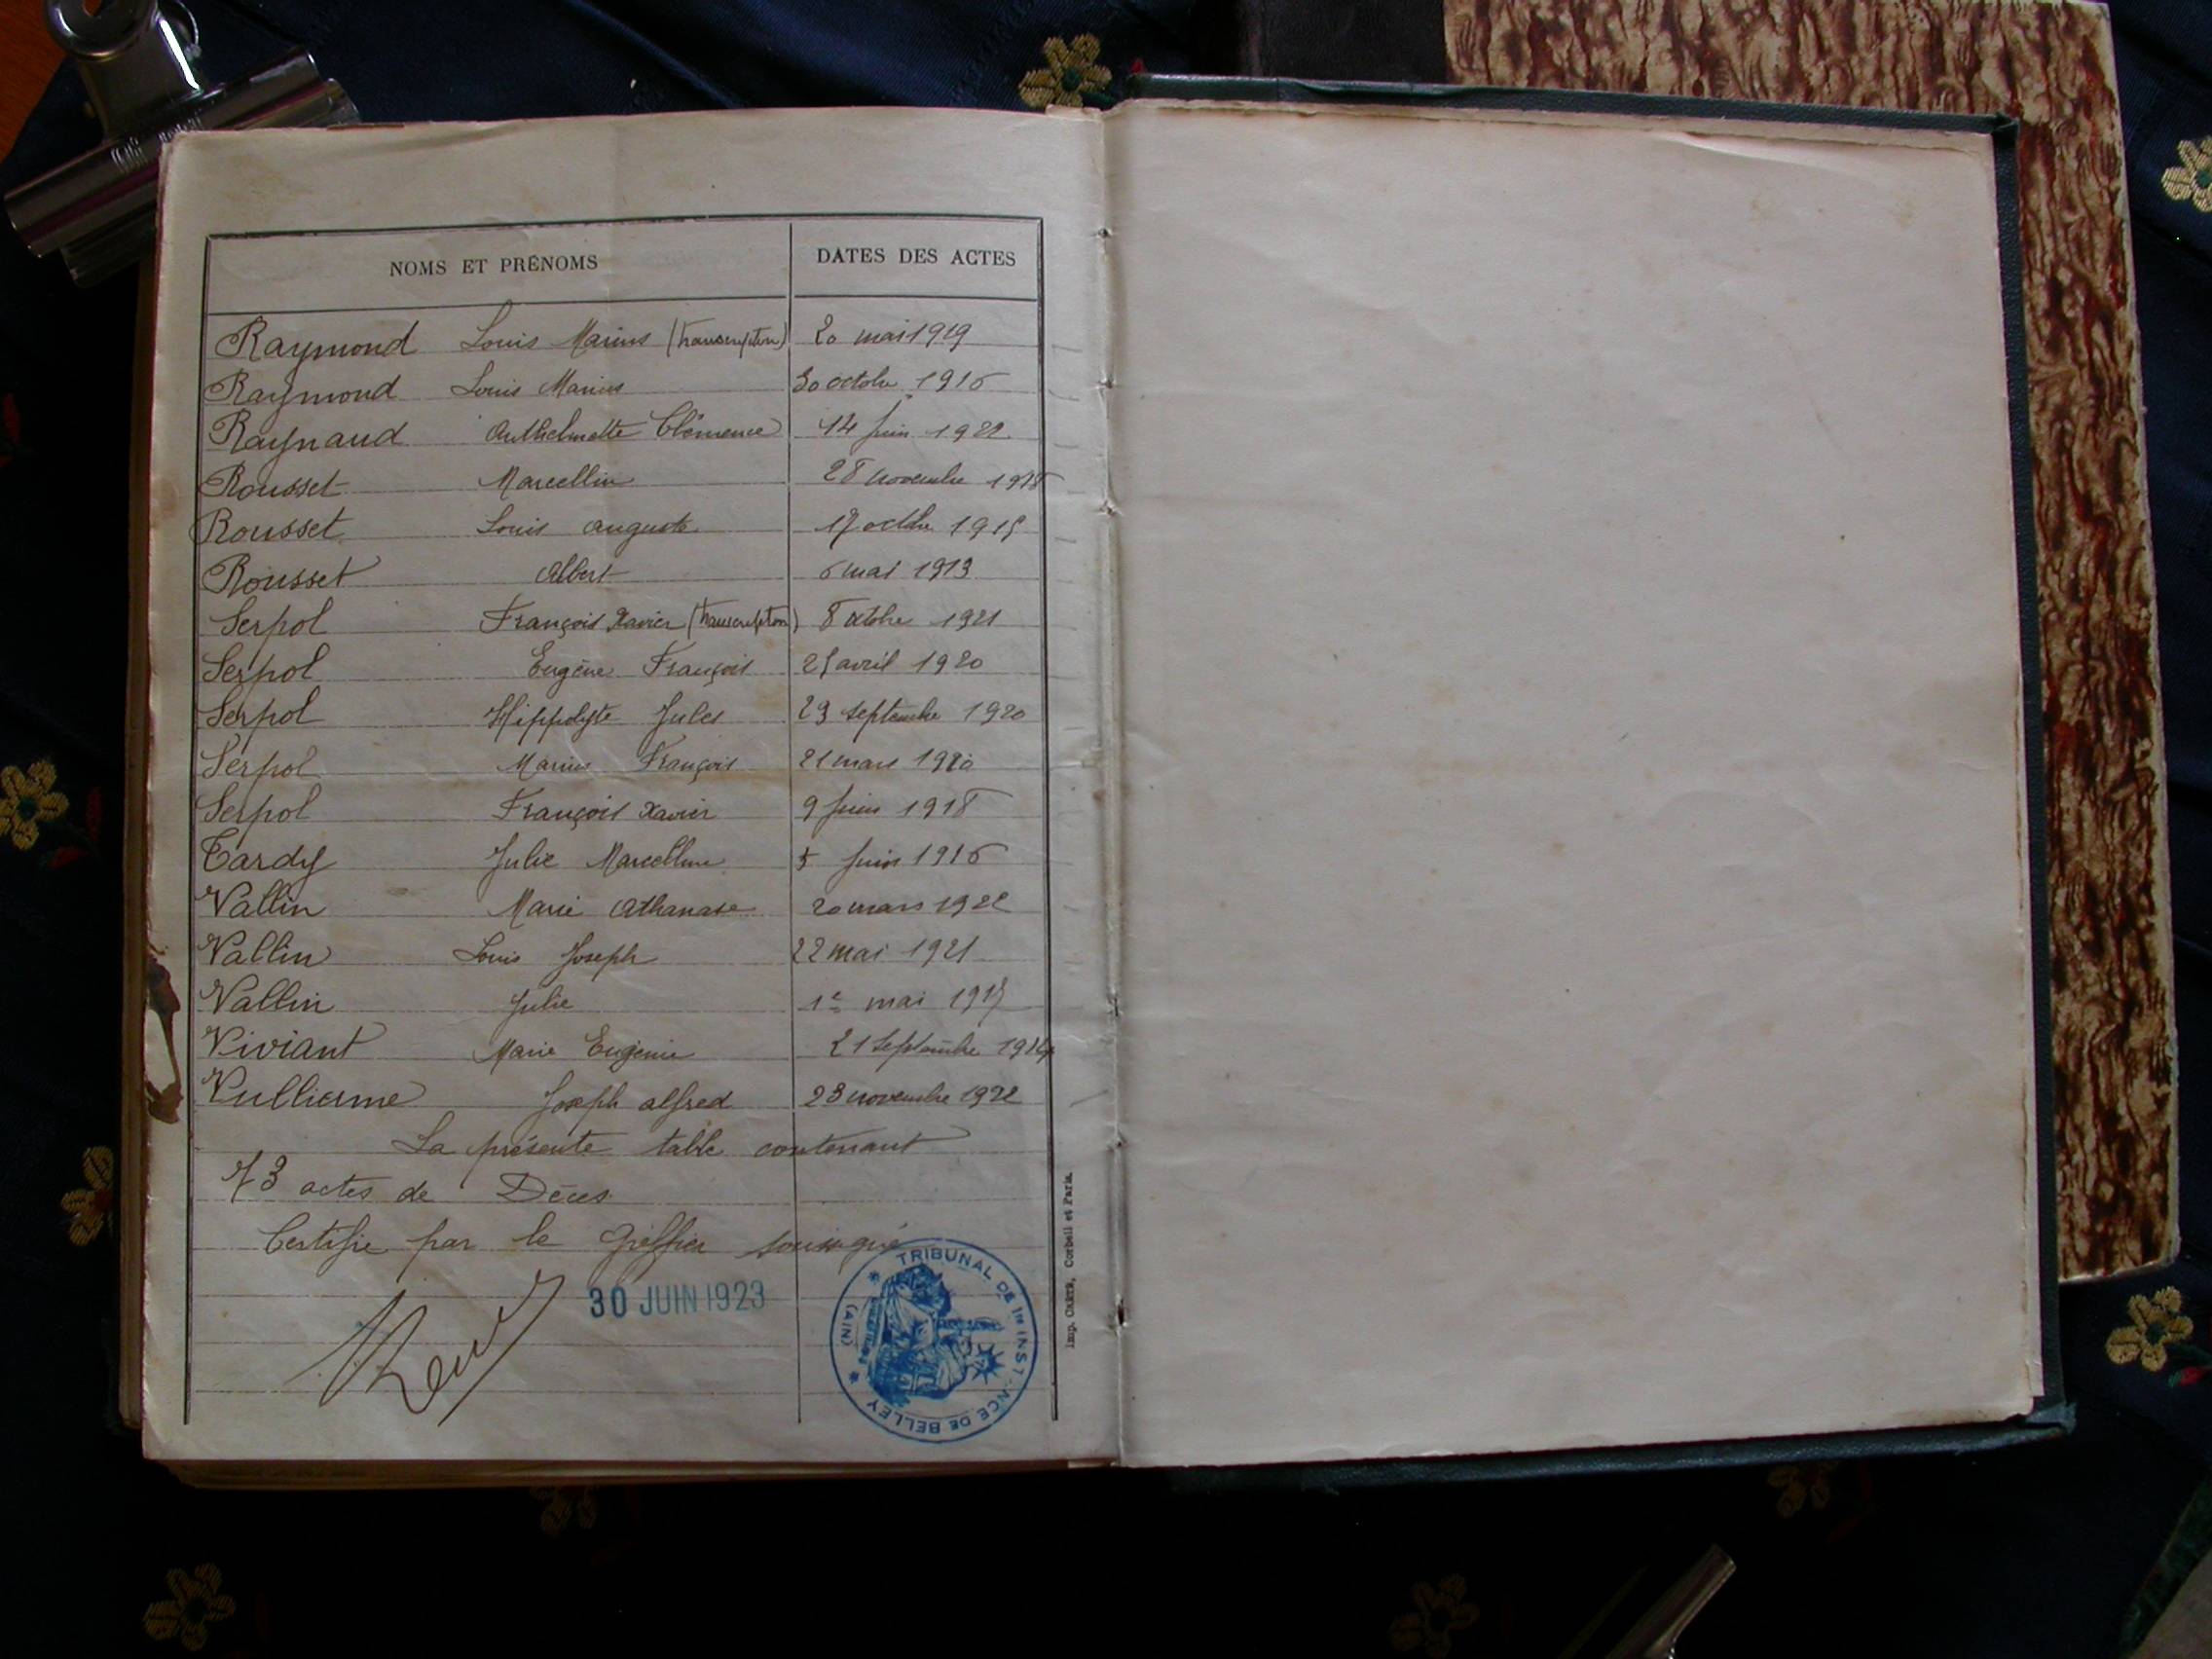 NOMS ET PRÉNOMS DATES DES ACTES
Raymond Louis Marius (transcription) 20 mai 1919
Raymond Louis Marius 30 octobre 1916
Raynaud Anthelmette Clémence 14 juin 1922
Rousset Marcellin 28 novembre 1918
Rousset Louis auguste 17 octobre 1915
Rousset Albert 6 mai 1913
Serpol François Xavier (transcription) 8 octobre 1921
Serpol Eugène François 25 avril 1920
Serpol Hippolyte Jules 29 septembre 1920
Serpol Marius François 21 mars 1920
Serpol François Xavier 9 juin 1918
Tardy Julie Marcelline 5 juin 1916
Vallin Marie Athanase 20 mars 1922
Vallin Louis Joseph 22 mai 1921
Vallin Julie 1er mai 1915
Viviant Marie Eugénie 21 Septembre 1914
Vullierme Joseph alfred 23 novembre 1922
La présente table contenant
73 actes de Déces
Certifie par le Greffier soussigné
30 JUIN 1923
TRIBUNAL DE 1re INSTANCE DE BELLEY
(AIN)
Imp. CRÉTÉ, Corbeil et Paris.